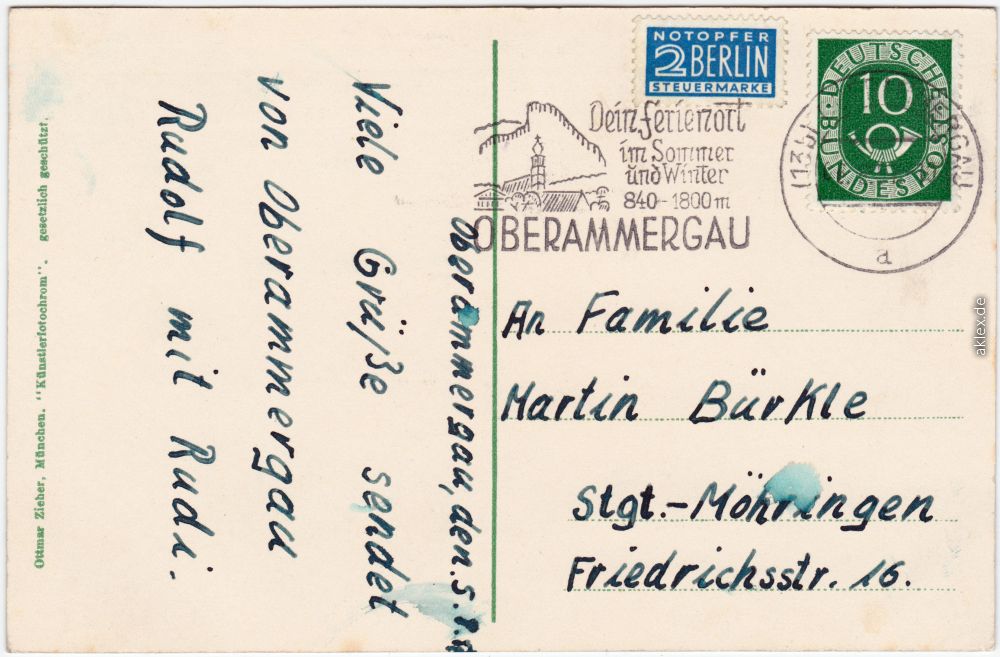 NOTOPFER
2 BERLIN
STEUERMARKE
DEUTSCHE BUNDESPOST
10
Dein Ferienort
im Sommer
und Winter
840-1800 m
OBERAMMERGAU
(13b)
a
Oberammergau, den. 5.
Viele Grüße sendet
von Oberammergau
Rudolf mit Rudi.
An Familie
Martin Bürkle
Stgt.-Möhringen
Friedrichsstr. 16.
Ottmar Zieher, München. "Künstlerfotochrom". gesetzlich geschützt.
aklex.de